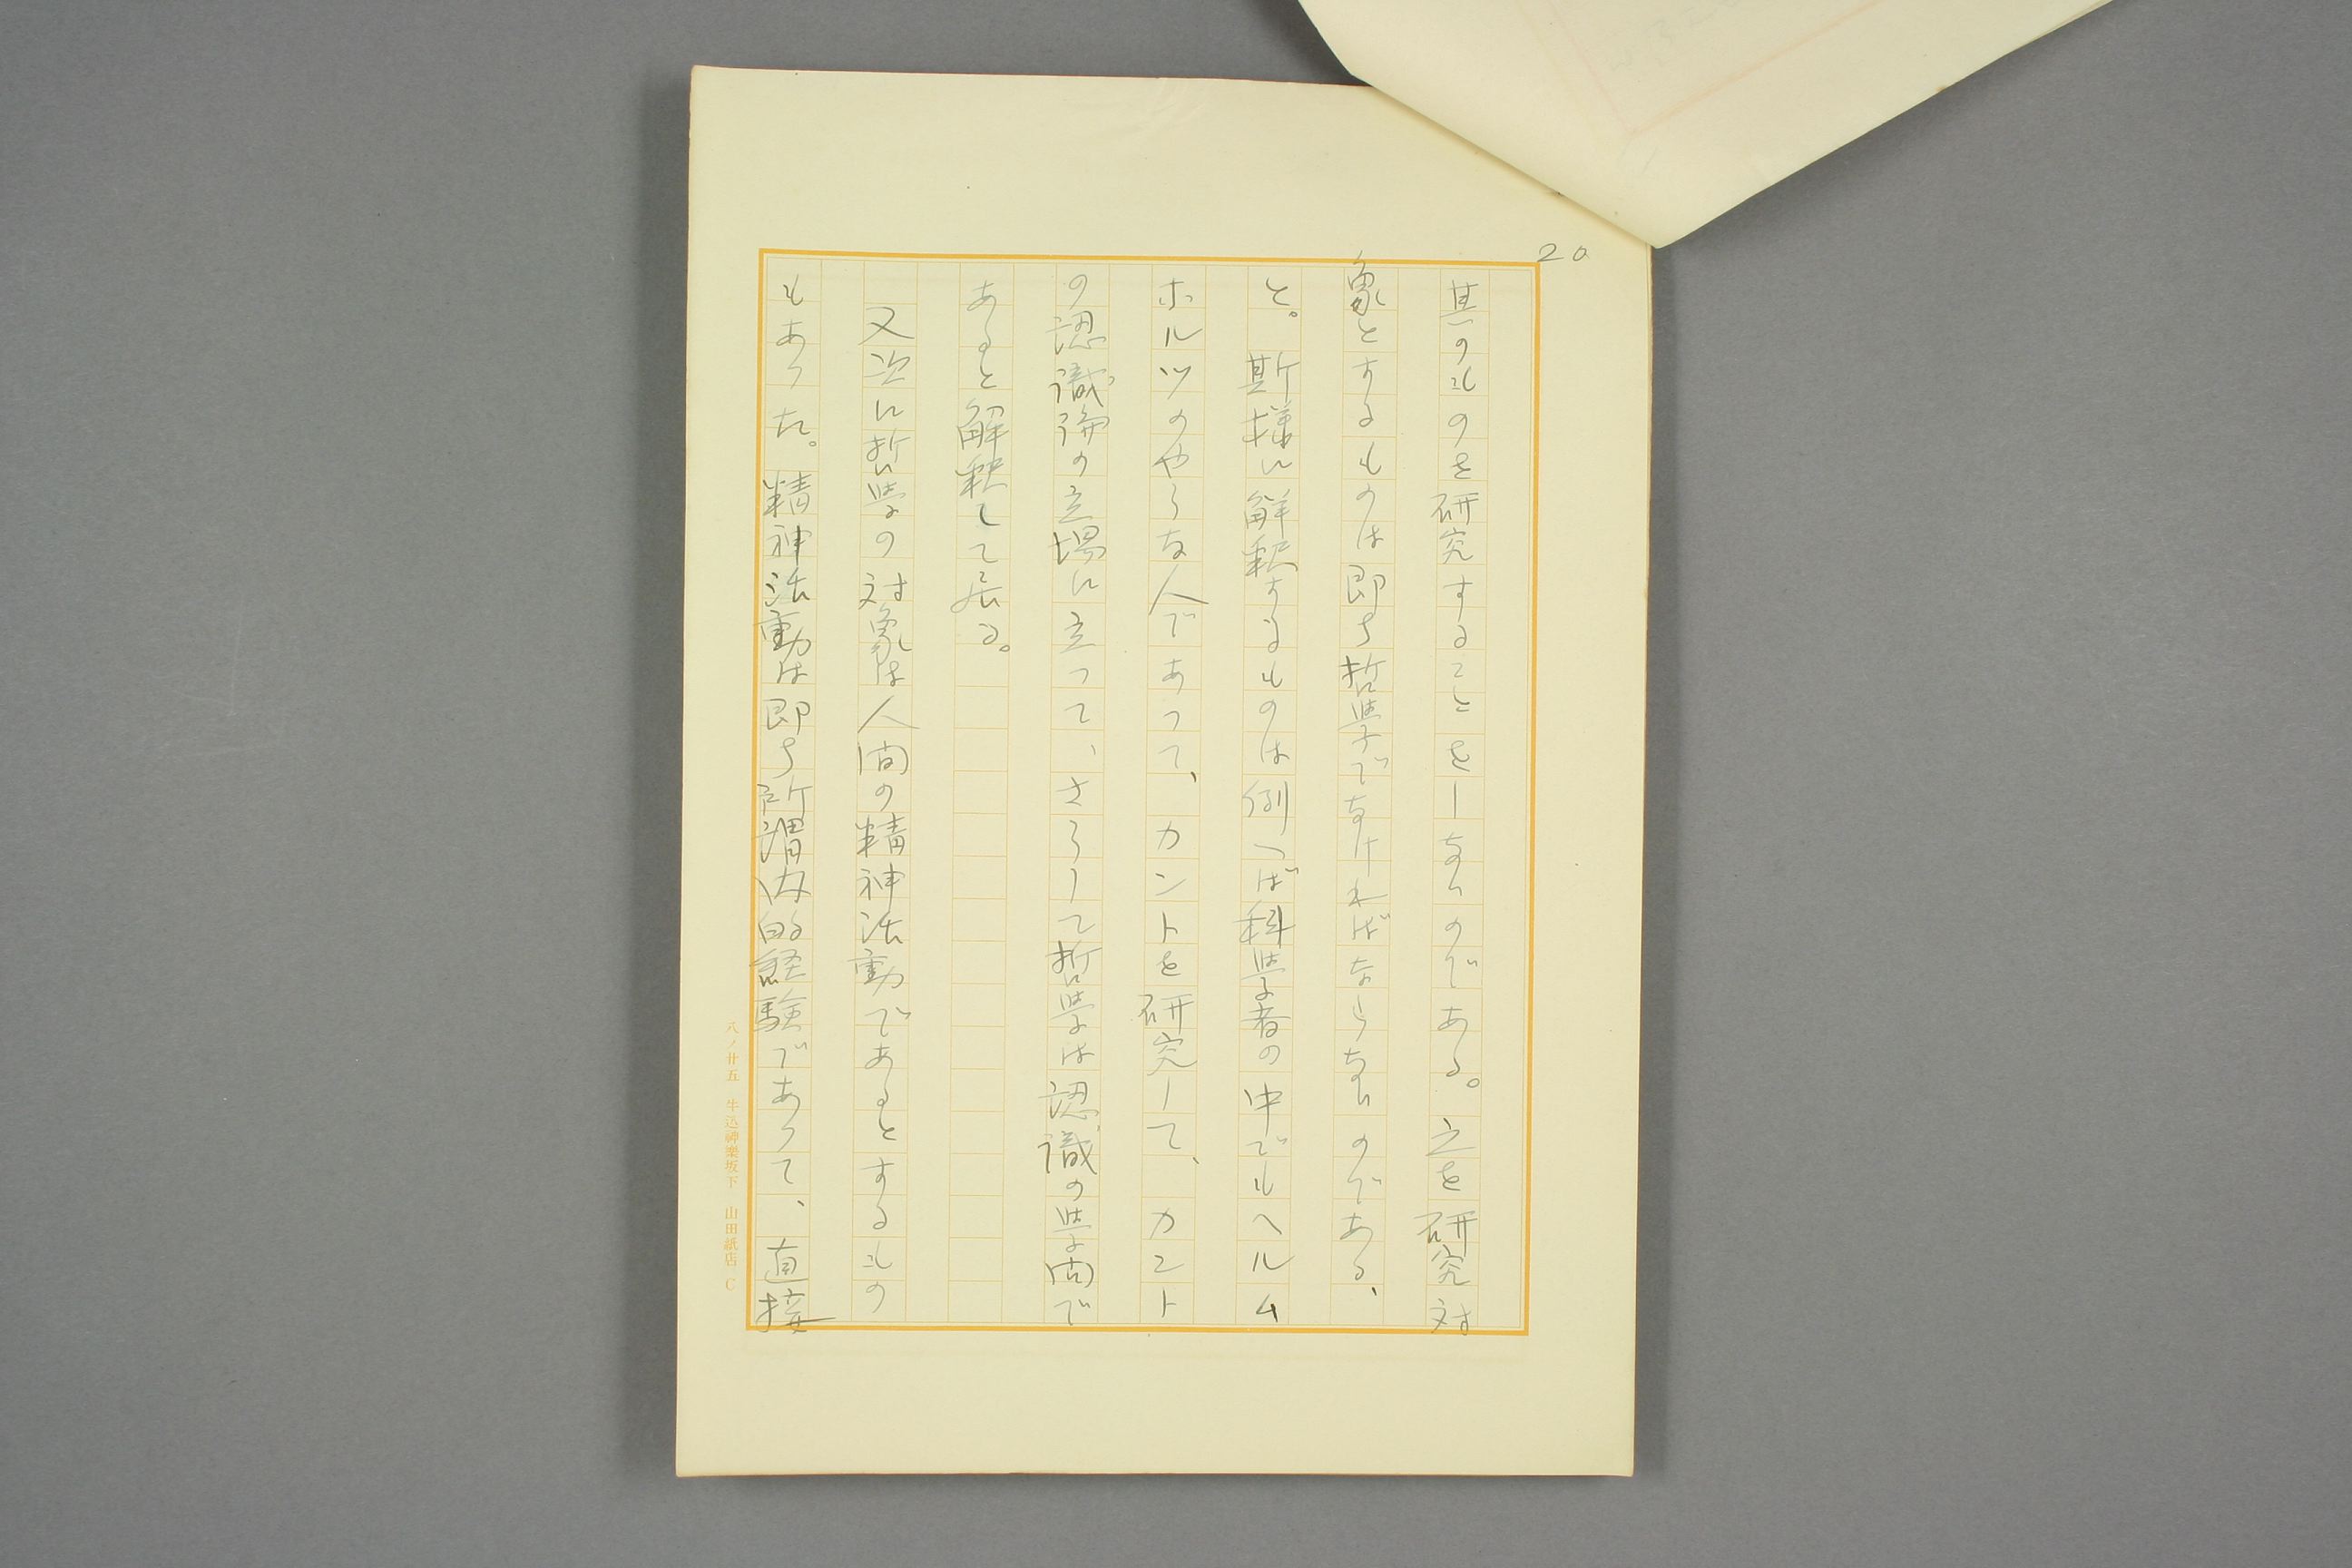 20
其のものを研究することをしないのである。之を研究対
象とするものは即ち哲学でなければならないのである、
と。斯様に解釈するものは例へば科学者の中でもヘルム
ホルツのやうな人であつて、カントを研究して、カント
の認識論の立場に立つて、さうして哲学は認識の学問で
あると解釈して居る。
又次に哲学の対象は人間の精神活動であるとするもの
もあつた。精神活動は即ち所謂内的経験であつて、直接
八ノ廿五 牛込神樂坂下 山田紙店 C